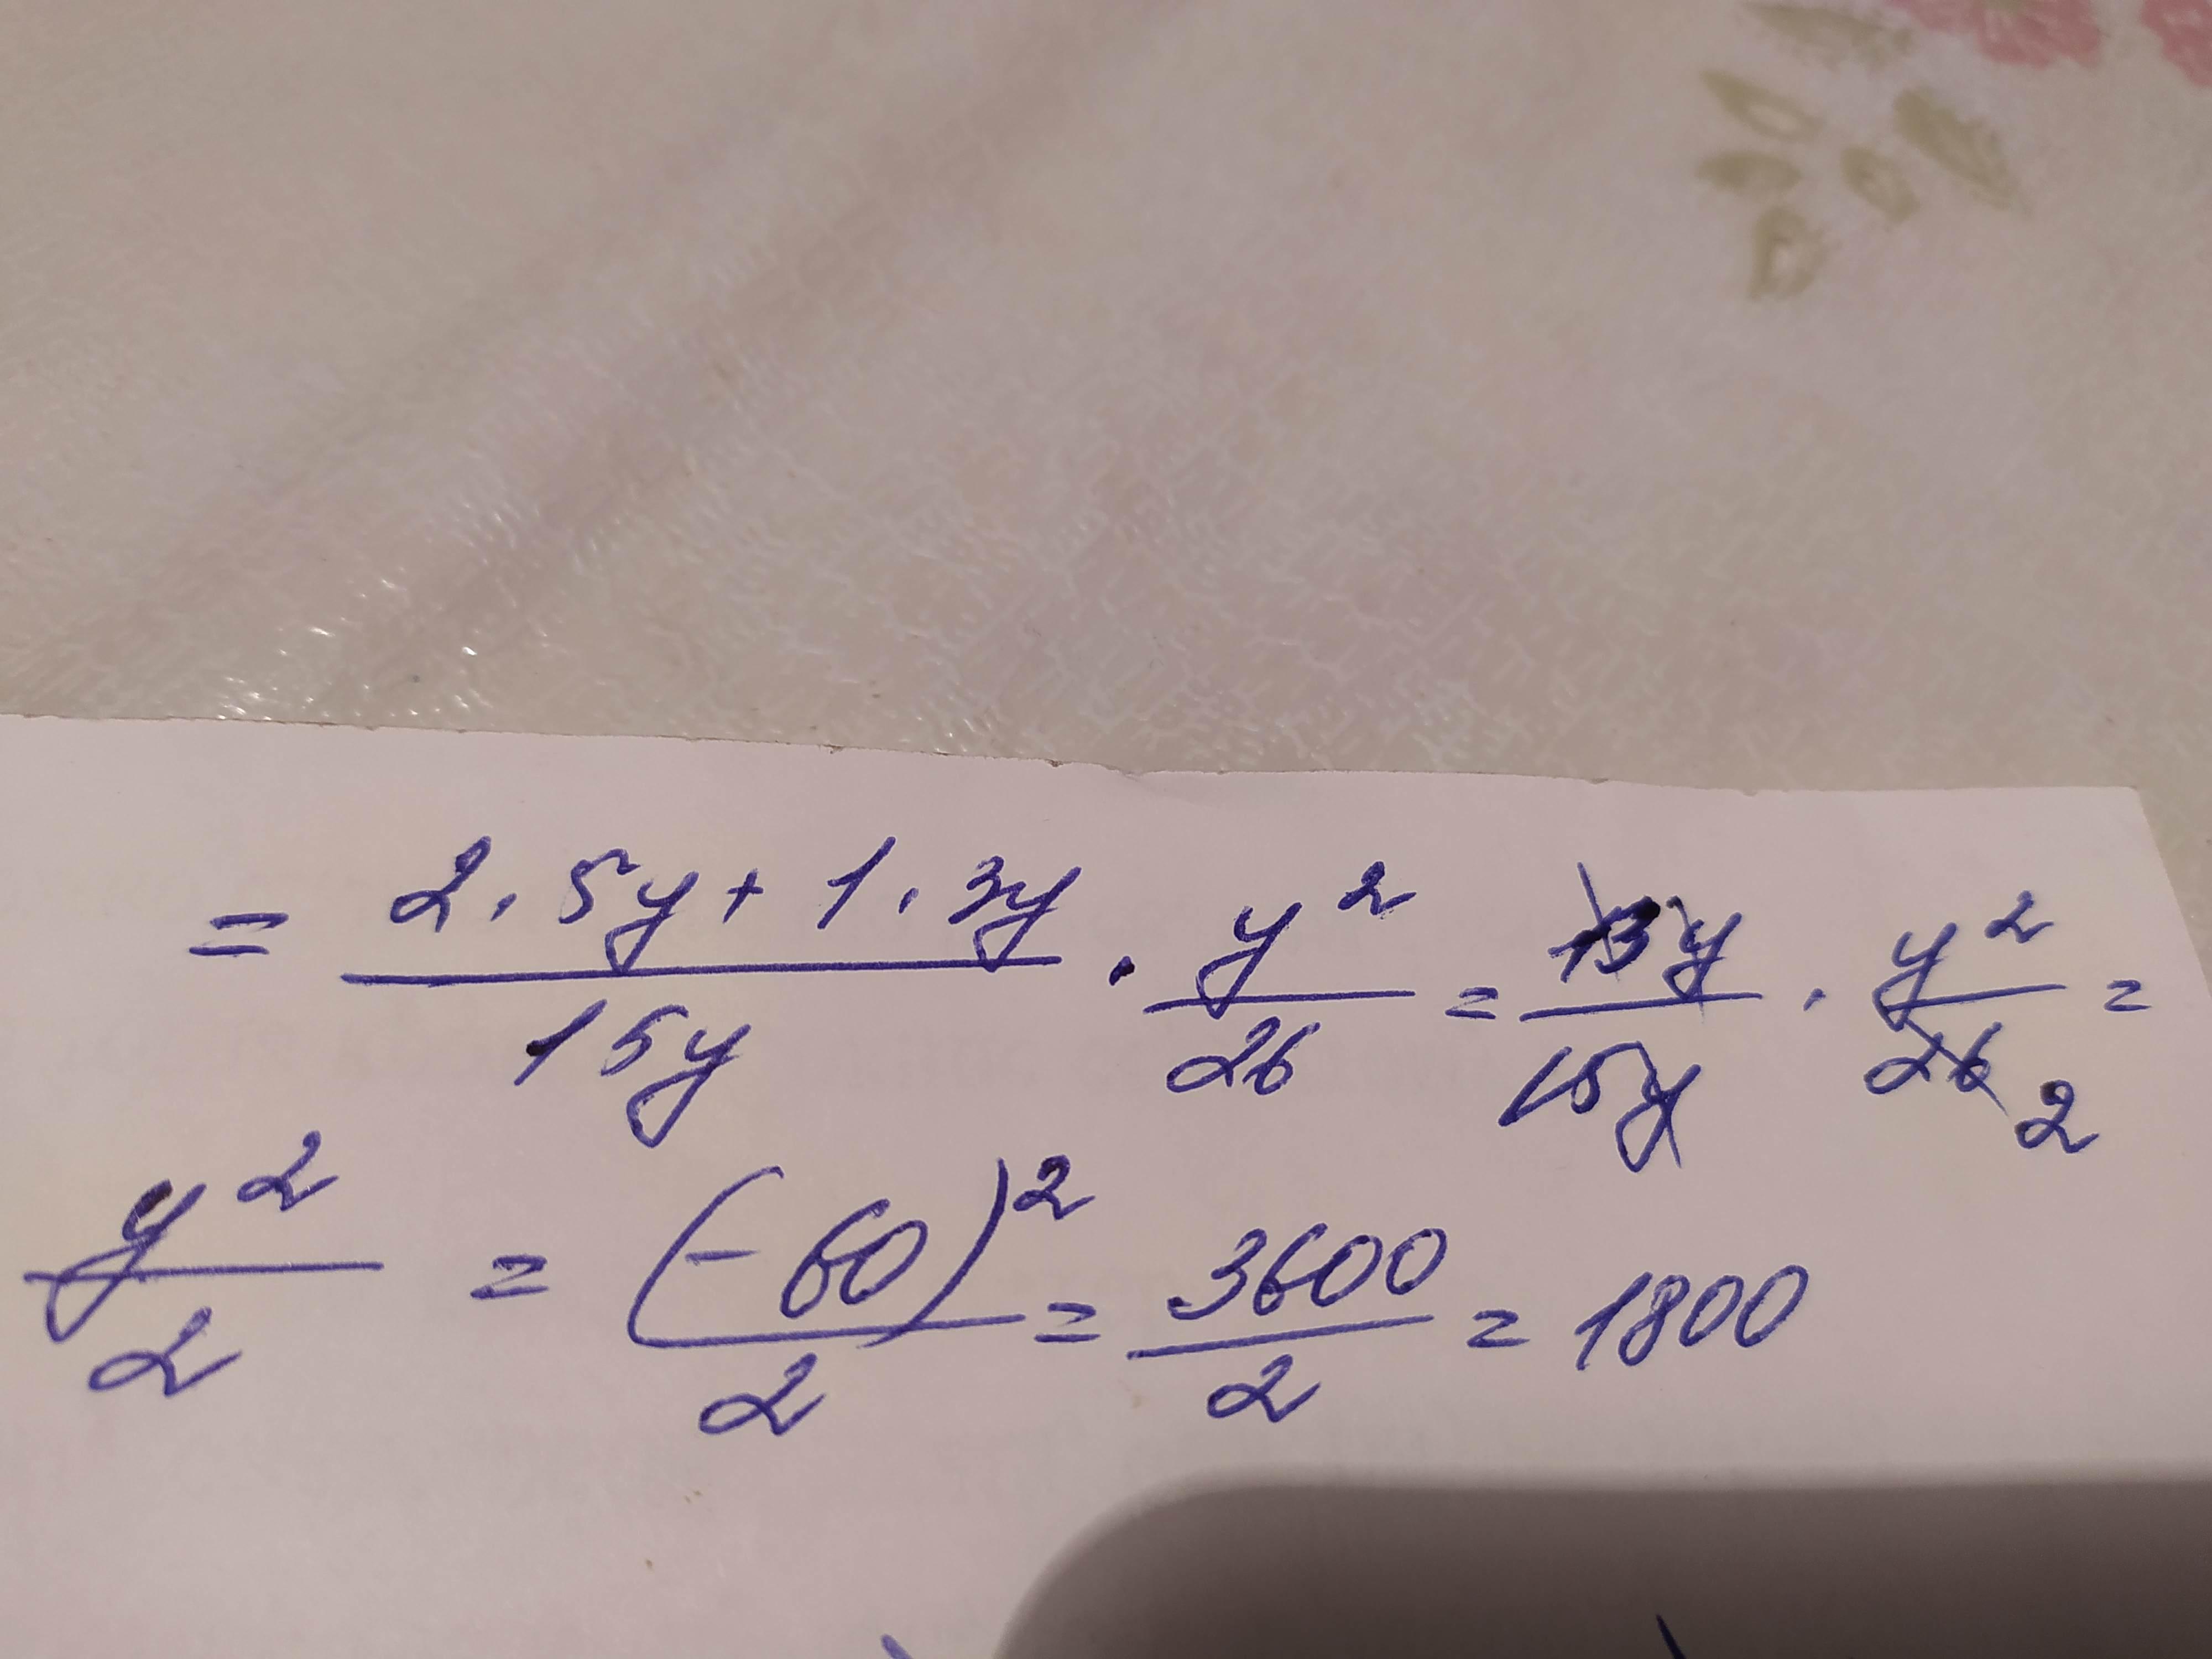 = (2 · 5y + 1 · 3y)/(15y) · y²/26 = 13y/15y · y²/26 2 =
y²/2 = (-60)²/2 = 3600/2 = 1800